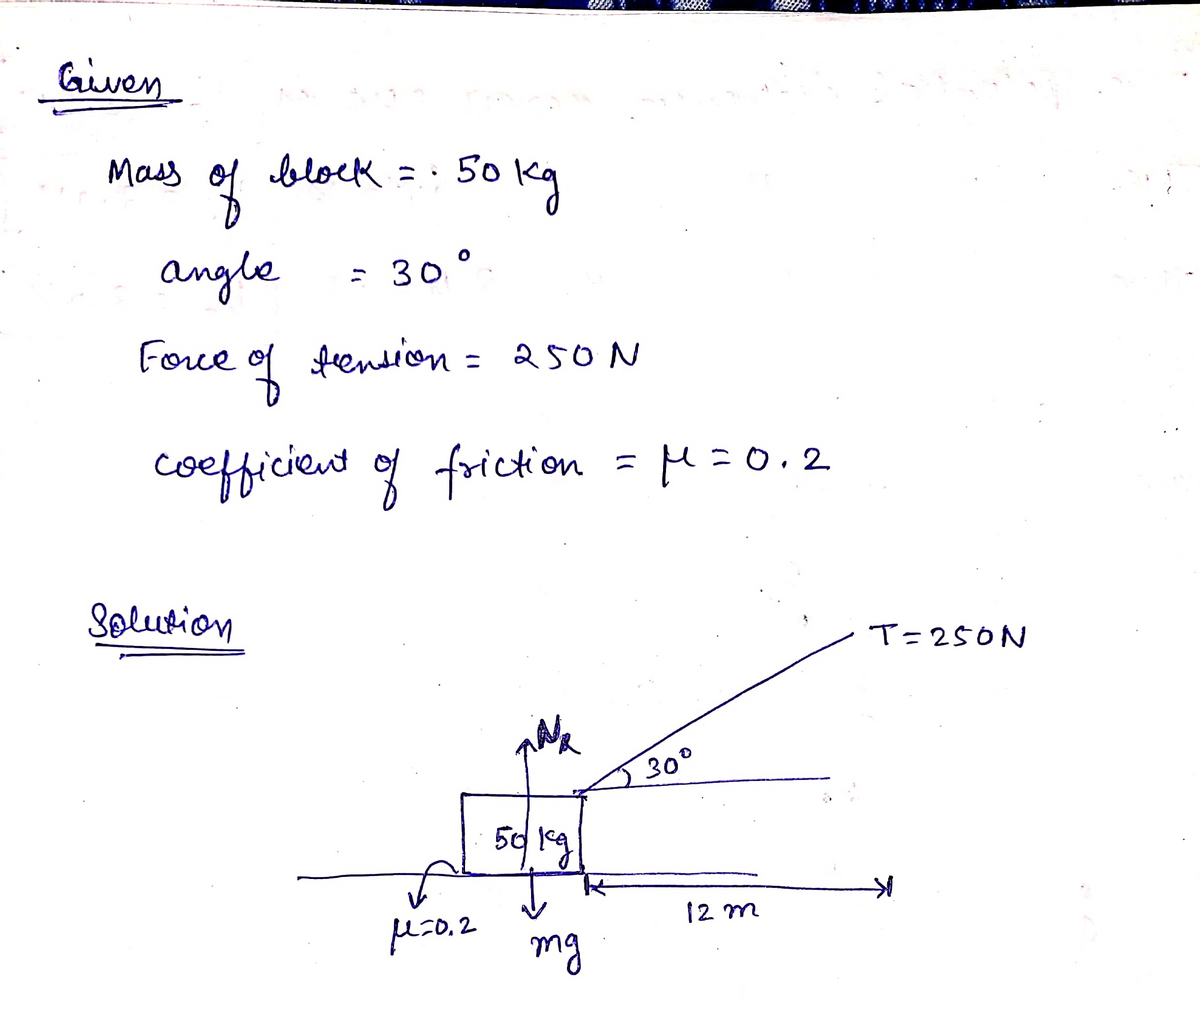 Given
Mass of block = 50 kg
angle = 30°
Force of tension = 250 N
coefficient of friction = μ = 0.2
Solution
T = 250N
NR
30°
50 kg
12 m
μ=0.2
mg